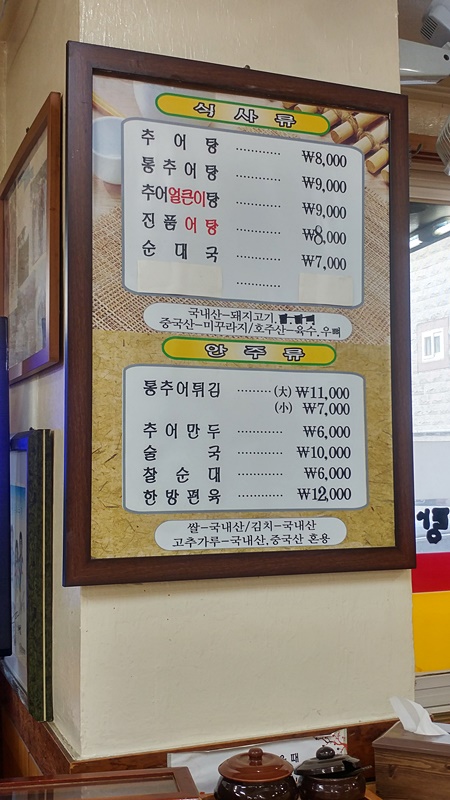 식사류
추어탕 ............ ₩8,000
통추어탕 ............ ₩9,000
추어얼큰이탕 ............ ₩9,000
진품어탕 ............ ₩8,000
순대국 ............ ₩7,000
............
국내산-돼지고기,
중국산-미꾸라지/호주산-육수,우뼈
안주류
통추어튀김 ......... (大) ₩11,000
(小) ₩7,000
추어만두 ............ ₩6,000
술국 ............ ₩10,000
찰순대 ............ ₩6,000
한방편육 ............ ₩12,000
쌀-국내산/김치-국내산
고추가루-국내산,중국산 혼용